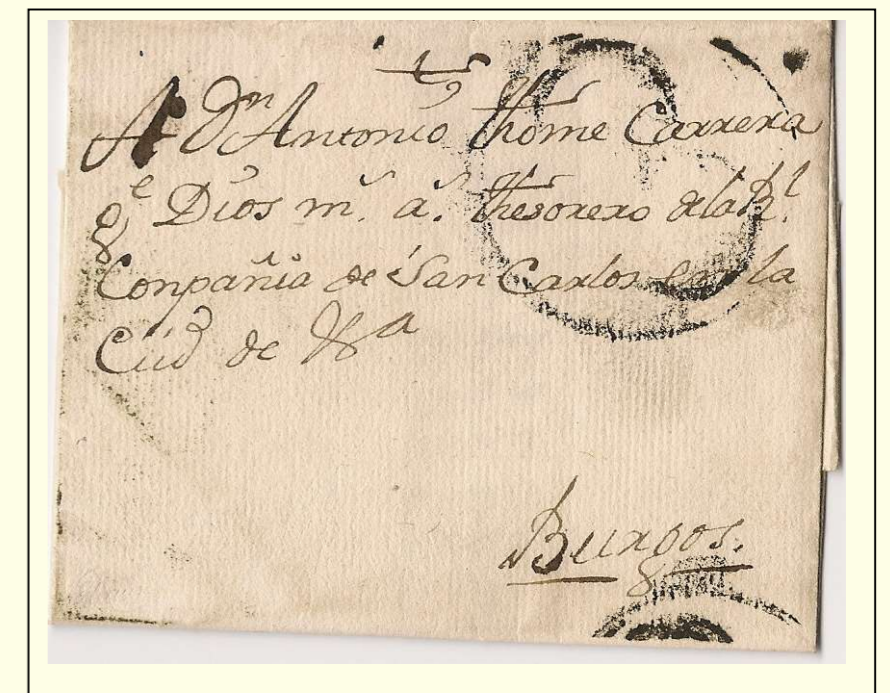 A Dn Antonio Thome Carrera
ge Dios ms. as. Thesorero dela Rl.
Conpañia de San Carlos en la
Ciud de
Burgos.